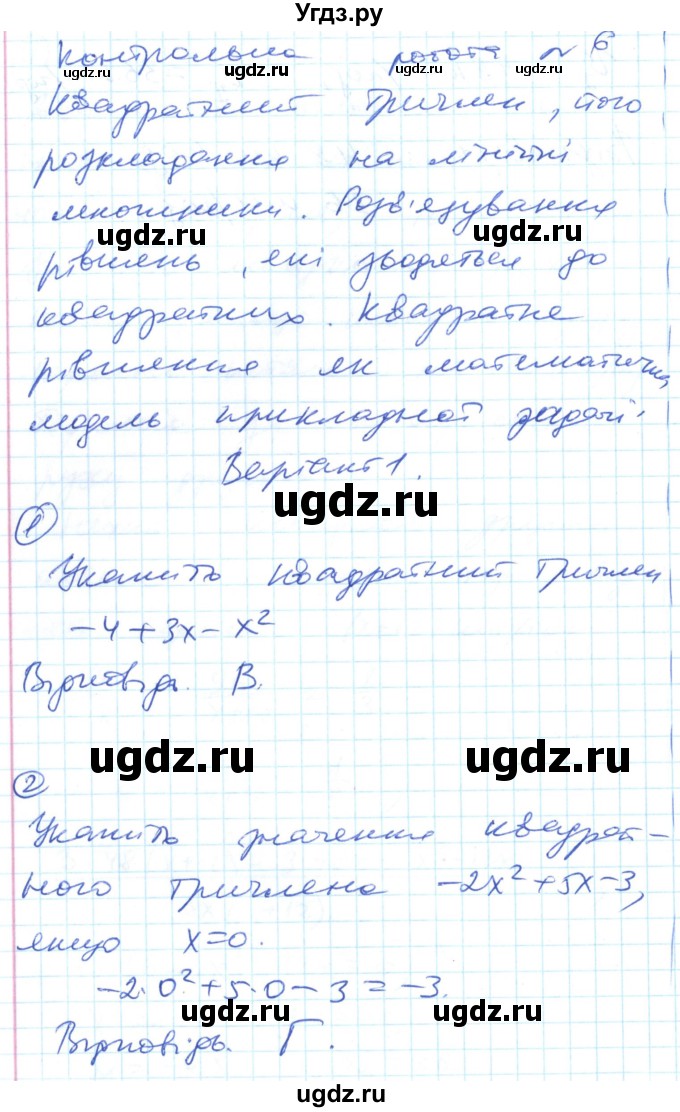 Угдз.ру
Контрольна робота № 6
ugdz.ru ugdz.ru
Квадратний тричлен, його
розкладання на лінійні
множники. Розв'язування
ugdz.ru ugdz.ru
рівнянь, які зводяться до
квадратних. Квадратне
рівняння як математична
модель прикладної задачі.
Варіант 1.
ugdz.ru
1
Укажіть квадратний тричлен
-4+3x-x²
Відповідь. В.
ugdz.ru ugdz.ru
2
Укажіть значення квадрат-
ного тричлена -2x²+5x-3,
якщо x=0.
-2·0²+5·0-3=-3.
ugdz.ru ugdz.ru
Відповідь. Г.
ugdz.ru